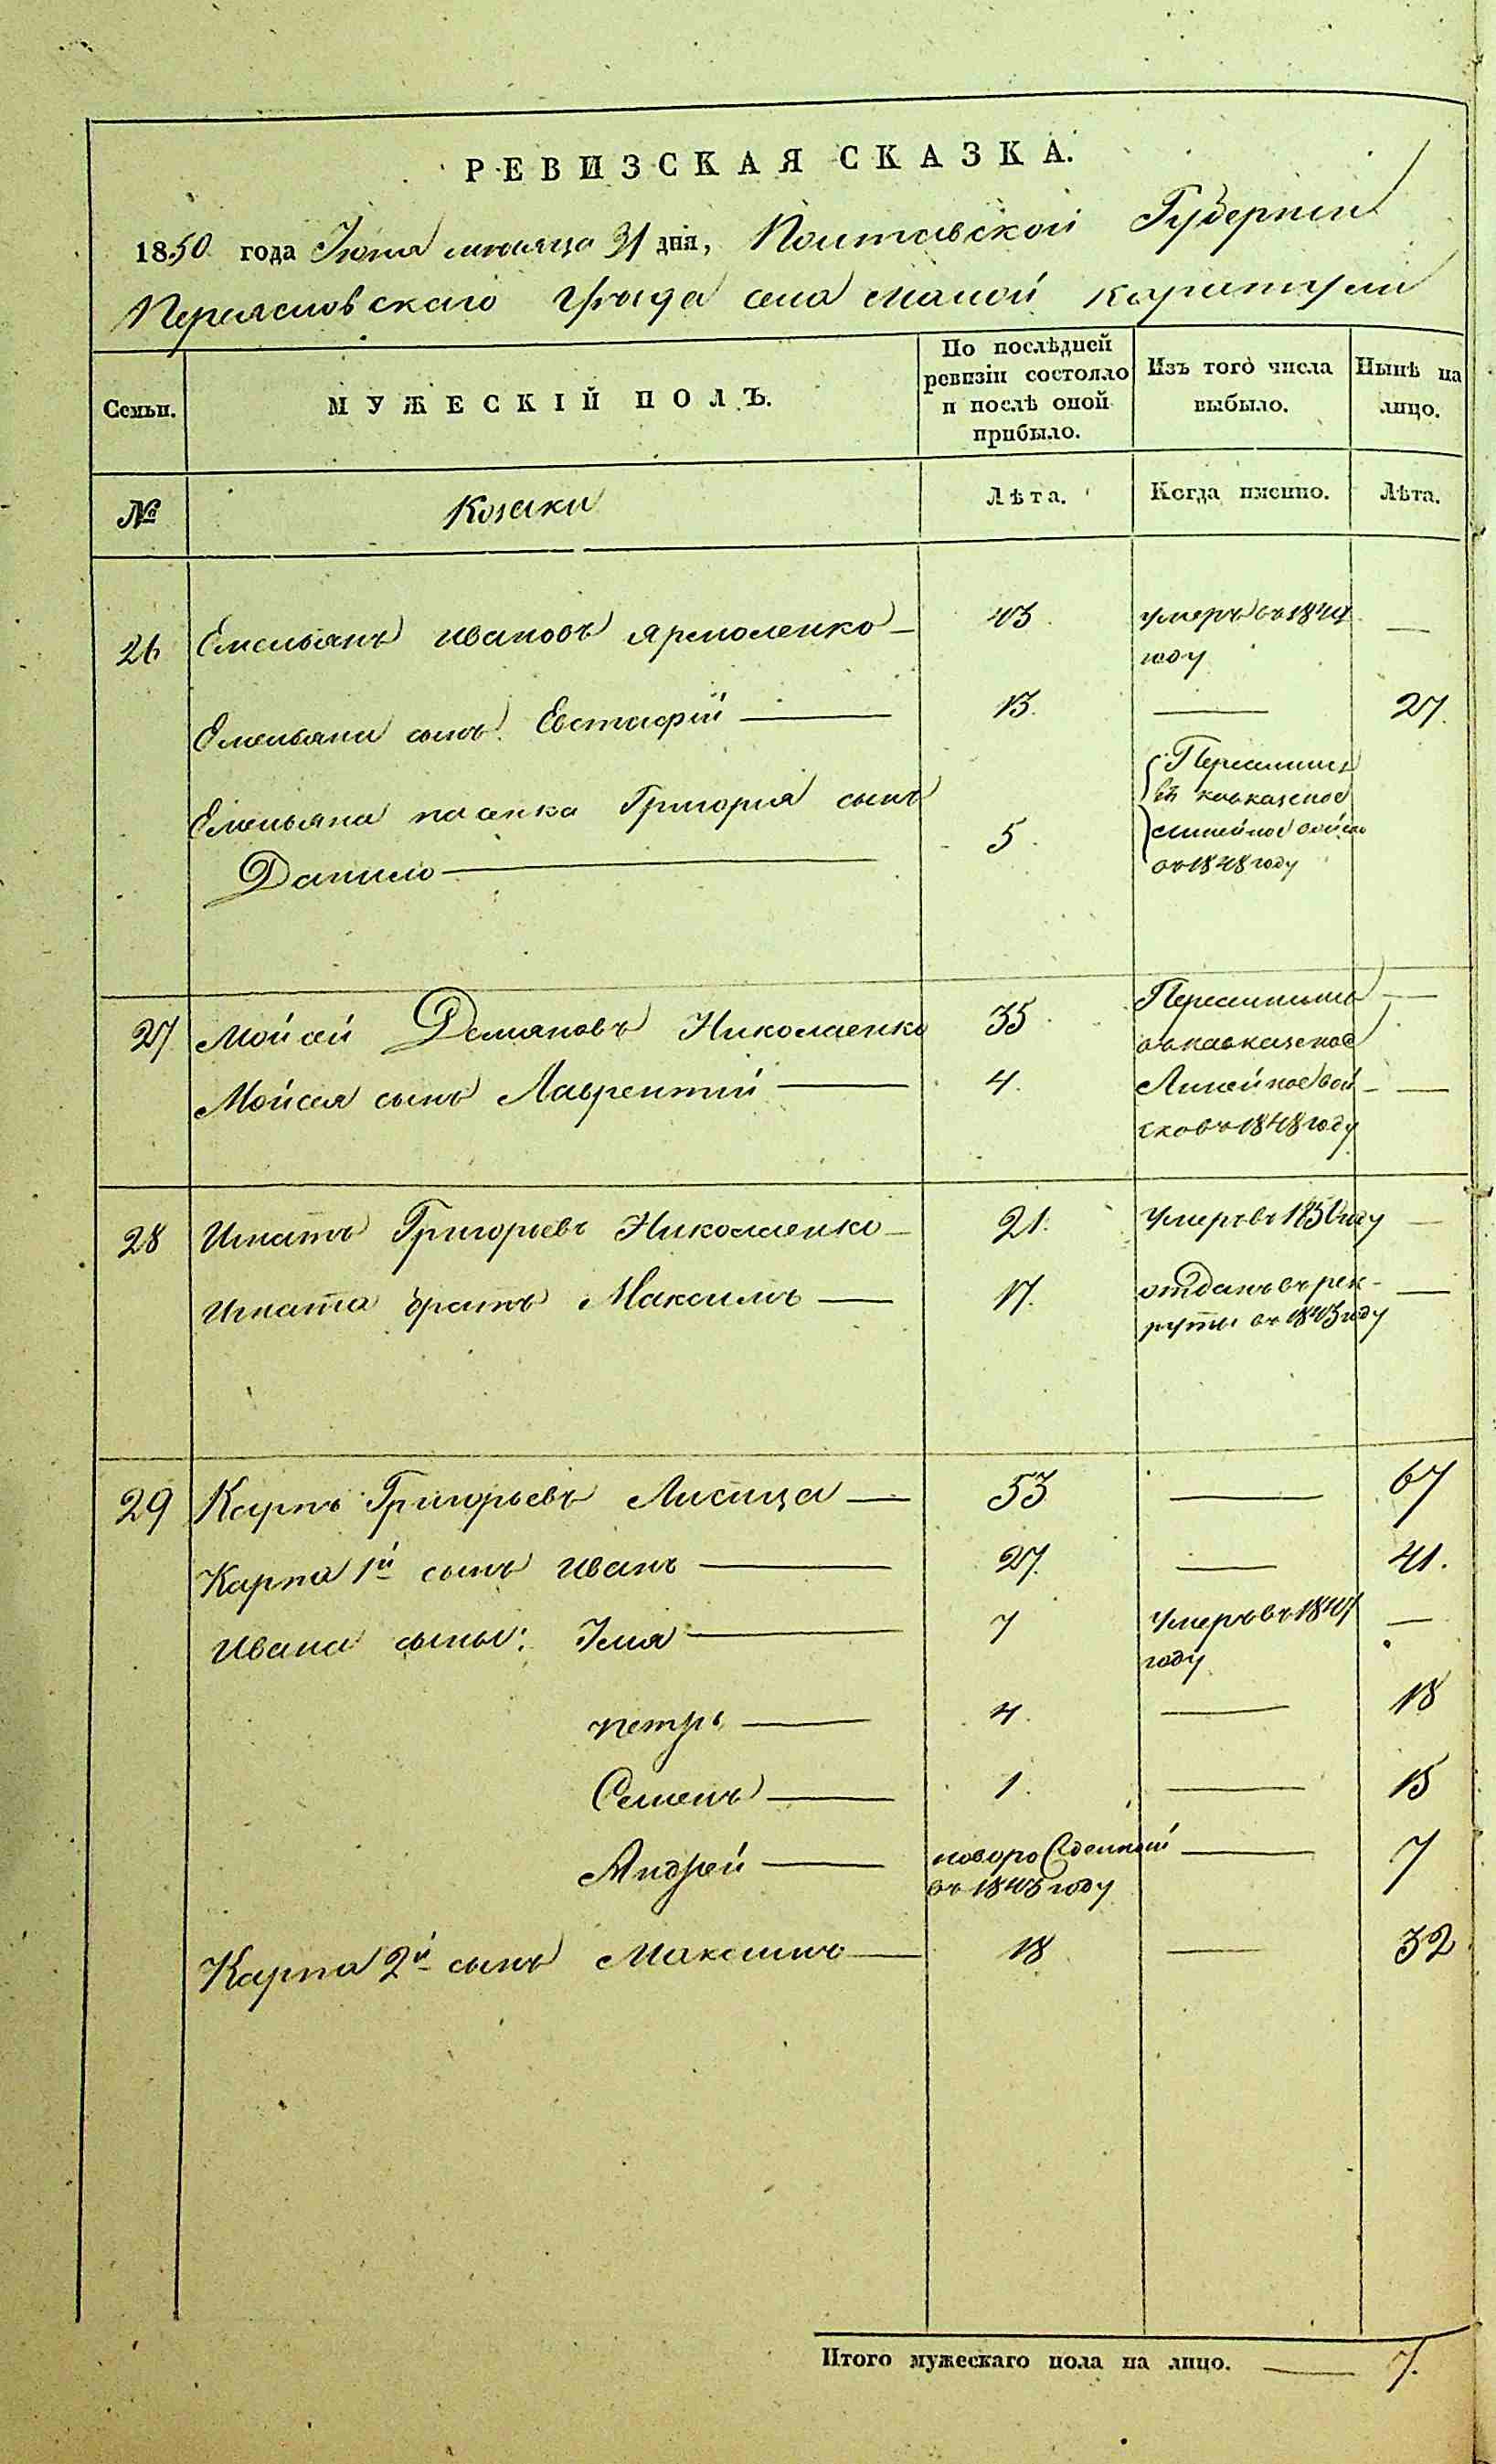 РЕВИЗСКАЯ СКАЗКА.
1850 года Іюня мѣсяца 31 дня, Полтавской Губерніи
Переясловскаго уѣзда села малой каратули
Семьи.
МУЖЕСКІЙ ПОЛЪ.
По послѣдней ревизіи состояло и послѣ оной прибыло.
Изъ того числа выбыло.
Нынѣ на лицо.
№
Козаки
Лѣта.
Когда именно.
Лѣта.
26 Емельянъ Ивановъ Ярмоленко — 43. умеръ въ 1844 году —
Емельяна сынъ Евстафій — 13. — 27.
Емельяна пасенка Григорія сынъ
Данило — 5. Переселился въ кавказское линейное войско въ 1848 году
27 Мойсей Демяновъ Николаенко 35. Переселились —
въ кавказское
Мойсея сынъ Лаврентій — 4. Линейное вой- —
ско въ 1848 году
28 Игнатъ Григорьевъ Николаенко — 21. Умеръ въ году —
Игната братъ Максимъ — 17. отданъ въ рек- —
руты въ 1843 году
29 Карпъ Григорьевъ Лисица — 53 — 67
Карпа 1й сынъ Иванъ — 27. — 41.
Ивана сыны: Илія — 7 Умеръ въ 1847 —
году
Петръ — 4. — 18
Семенъ — 1. — 15
Андрей — новорожденный — 7
въ 1843 году
Карпа 2й сынъ Максимъ — 18 — 32
Итого мужескаго пола на лицо. — 7.